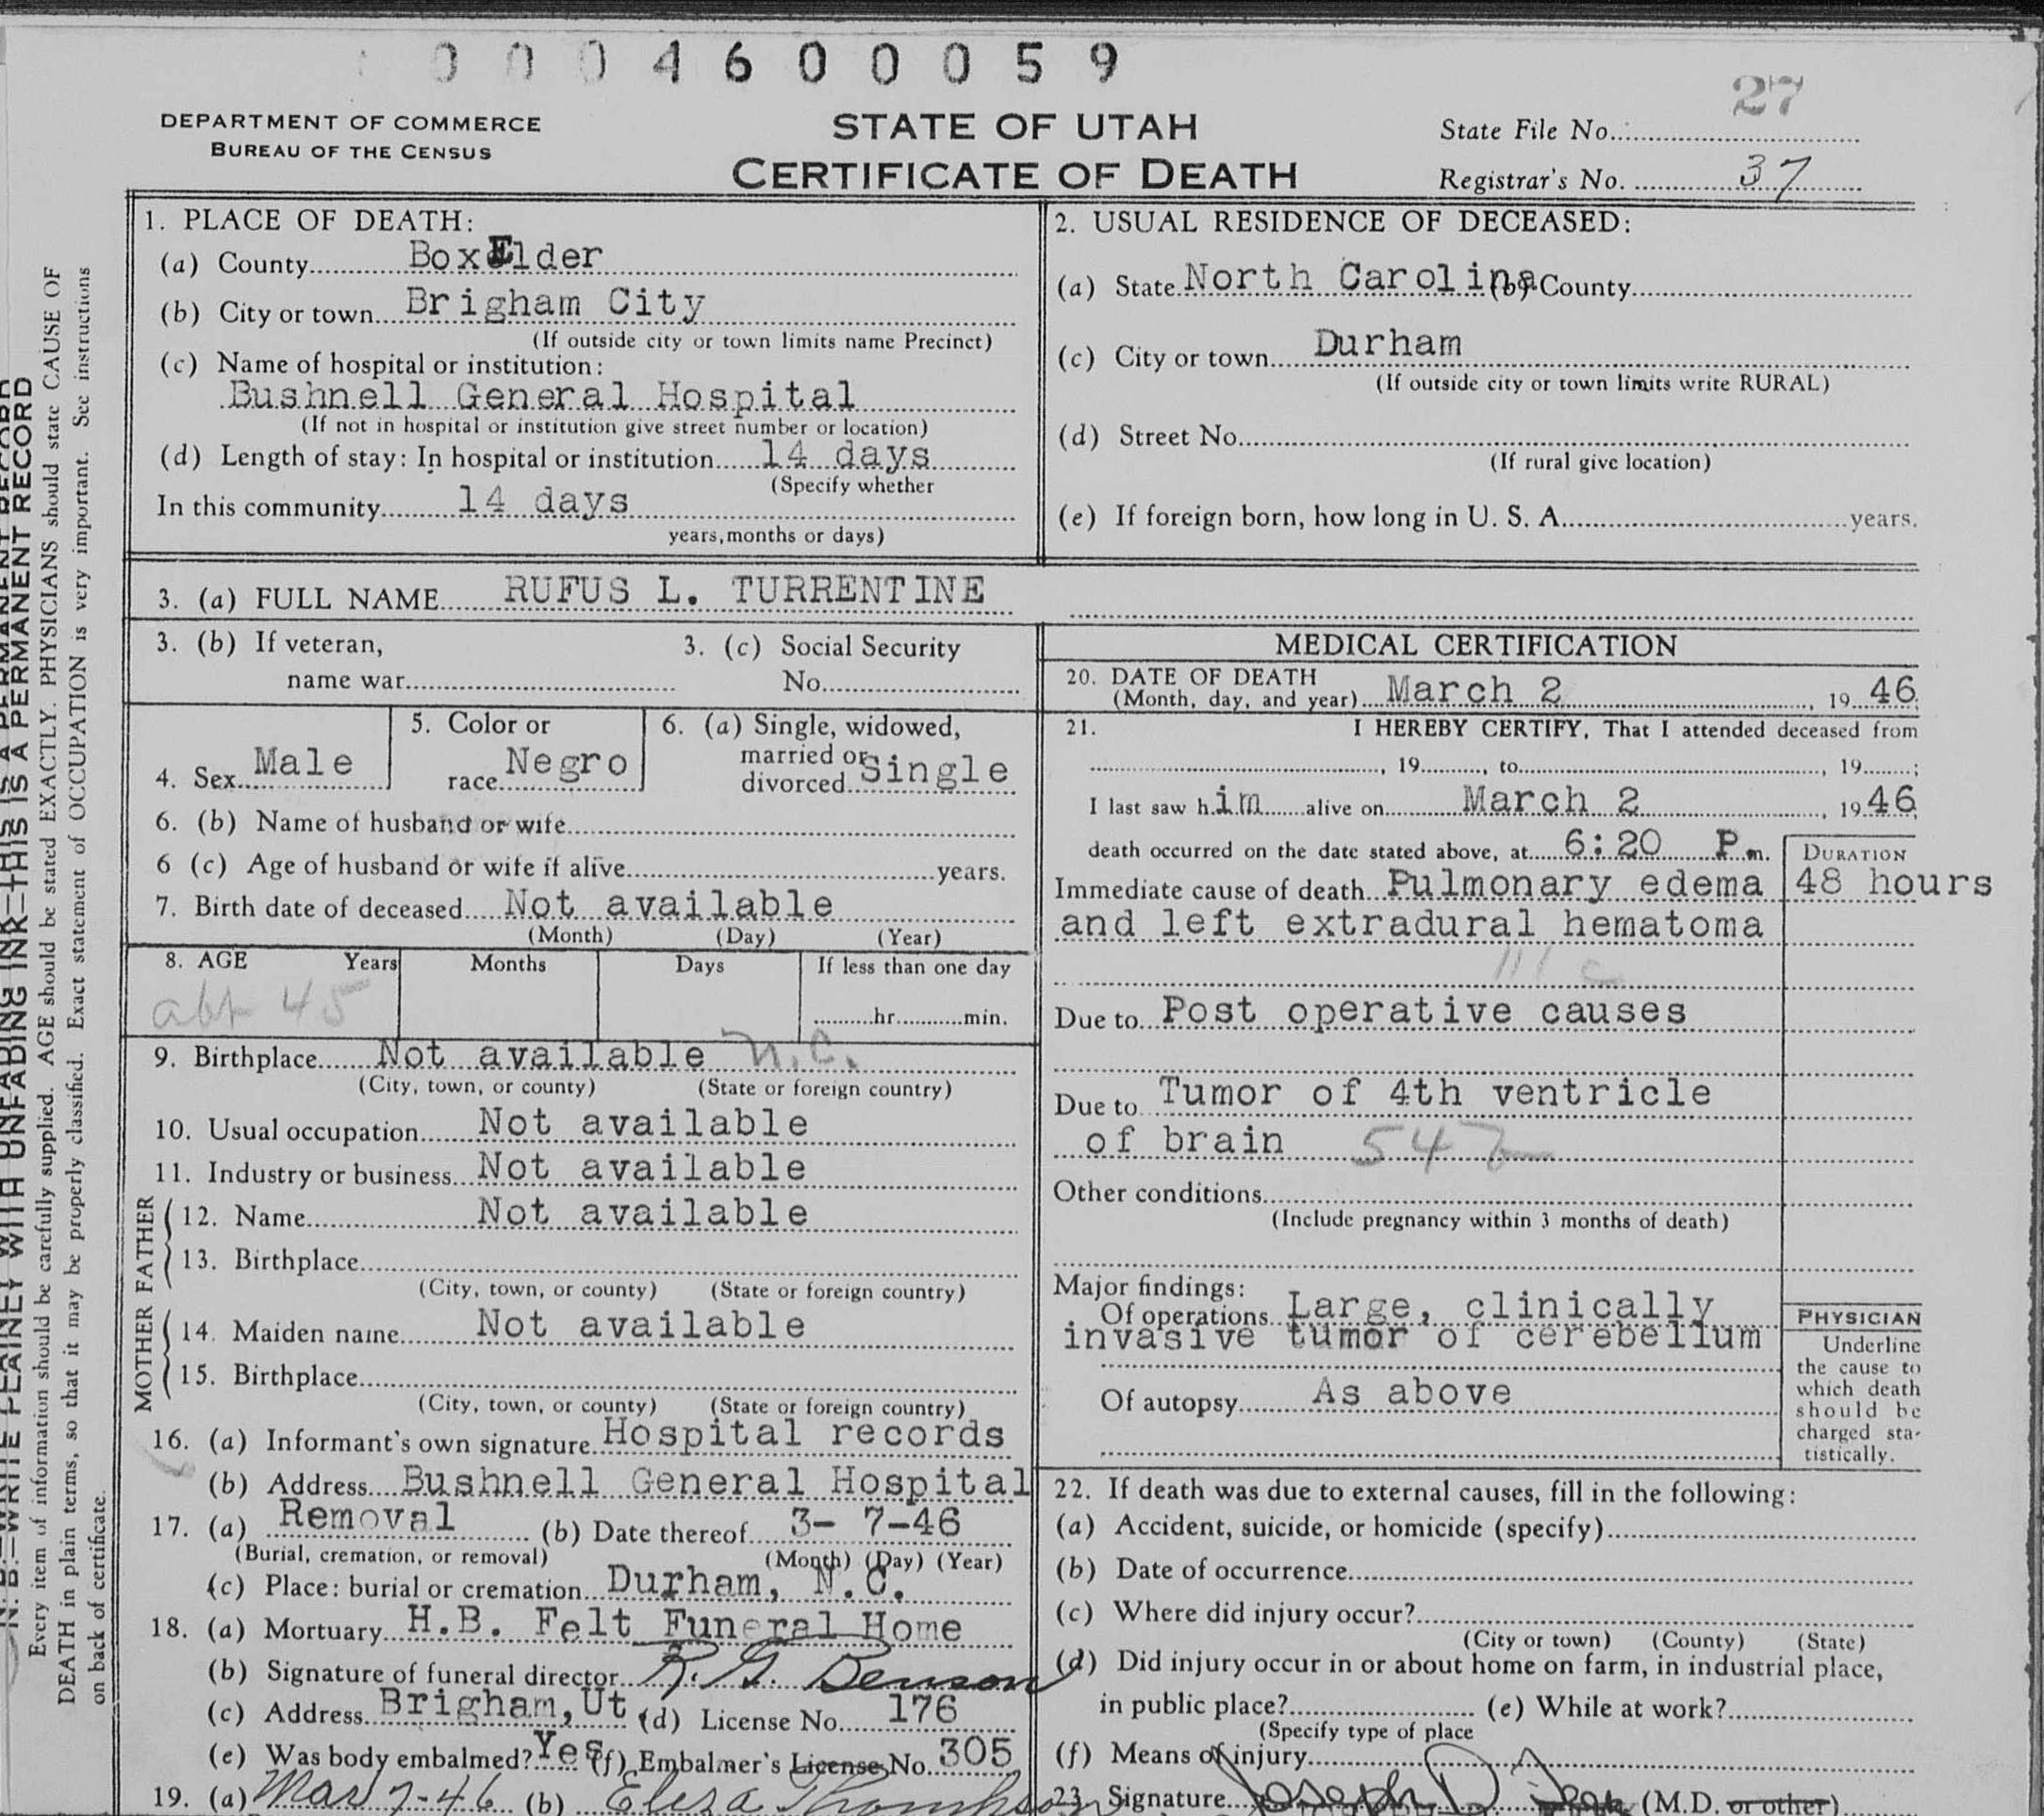 0 0 0 4 6 0 0 0 5 9
27
DEPARTMENT OF COMMERCE
BUREAU OF THE CENSUS
STATE OF UTAH
CERTIFICATE OF DEATH
State File No.
Registrar's No. 37
N. B.—WRITE PLAINLY WITH UNFADING INK—THIS IS A PERMANENT RECORD
Every item of information should be carefully supplied. AGE should be stated EXACTLY. PHYSICIANS should state CAUSE OF
DEATH in plain terms, so that it may be properly classified. Exact statement of OCCUPATION is very important. See instructions
on back of certificate.
1. PLACE OF DEATH:
(a) County BoxElder
(b) City or town Brigham City
(If outside city or town limits name Precinct)
(c) Name of hospital or institution:
Bushnell General Hospital
(If not in hospital or institution give street number or location)
(d) Length of stay: In hospital or institution 14 days
(Specify whether
In this community 14 days
years, months or days)
2. USUAL RESIDENCE OF DECEASED:
(a) State North Carolina (b) County
(c) City or town Durham
(If outside city or town limits write RURAL)
(d) Street No.
(If rural give location)
(e) If foreign born, how long in U. S. A. years.
3. (a) FULL NAME RUFUS L. TURRENTINE
3. (b) If veteran,
name war
3. (c) Social Security
No.
4. Sex Male
5. Color or
race Negro
6. (a) Single, widowed,
married or
divorced Single
6. (b) Name of husband or wife
6 (c) Age of husband or wife if alive years.
7. Birth date of deceased Not available
(Month) (Day) (Year)
8. AGE Years Months Days If less than one day
abt 45 hr. min.
9. Birthplace Not available N.C.
(City, town, or county) (State or foreign country)
10. Usual occupation Not available
11. Industry or business Not available
FATHER
12. Name Not available
13. Birthplace
(City, town, or county) (State or foreign country)
MOTHER
14. Maiden name Not available
15. Birthplace
(City, town, or county) (State or foreign country)
16. (a) Informant's own signature Hospital records
(b) Address Bushnell General Hospital
17. (a) Removal (b) Date thereof 3- 7-46
(Burial, cremation, or removal) (Month) (Day) (Year)
(c) Place: burial or cremation Durham, N.C.
18. (a) Mortuary H.B. Felt Funeral Home
(b) Signature of funeral director R. G. Benson
(c) Address Brigham, Ut (d) License No. 176
(e) Was body embalmed? Yes (f) Embalmer's License No. 305
19. (a) Mar 7-46 (b) Eliza Thompson
MEDICAL CERTIFICATION
20. DATE OF DEATH
(Month, day, and year) March 2, 19 46
21. I HEREBY CERTIFY, That I attended deceased from
, 19 , to , 19 ;
I last saw h im alive on March 2, 19 46
death occurred on the date stated above, at 6:20 P m.
DURATION
Immediate cause of death Pulmonary edema 48 hours
and left extradural hematoma
Due to Post operative causes
Due to Tumor of 4th ventricle
of brain 54
Other conditions
(Include pregnancy within 3 months of death)
Major findings:
Of operations Large, clinically
invasive tumor of cerebellum
Of autopsy As above
PHYSICIAN
Underline
the cause to
which death
should be
charged sta-
tistically.
22. If death was due to external causes, fill in the following:
(a) Accident, suicide, or homicide (specify)
(b) Date of occurrence
(c) Where did injury occur?
(City or town) (County) (State)
(d) Did injury occur in or about home on farm, in industrial place,
in public place? (e) While at work?
(Specify type of place
(f) Means of injury
23 Signature Joseph (M.D. or other)